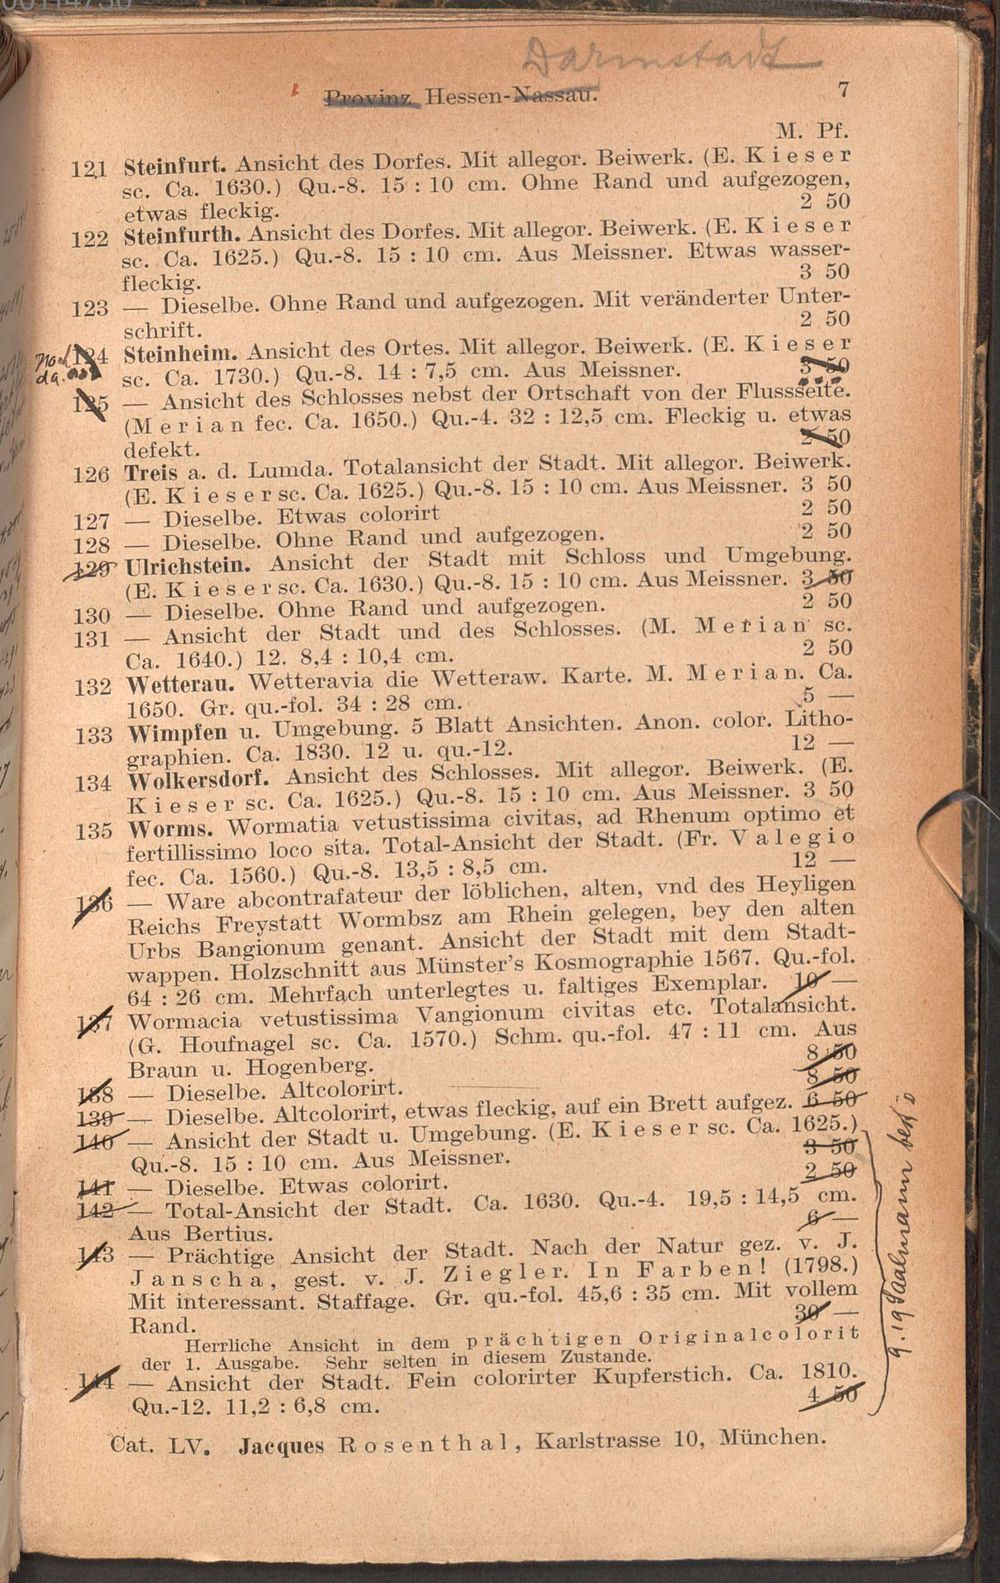 00114730
Darmstadt
Provinz Hessen-Nassau.
7
M. Pf.
121 Steinfurt. Ansicht des Dorfes. Mit allegor. Beiwerk. (E. Kieser
sc. Ca. 1630.) Qu.-8. 15 : 10 cm. Ohne Rand und aufgezogen,
etwas fleckig. 2 50
122 Steinfurth. Ansicht des Dorfes. Mit allegor. Beiwerk. (E. Kieser
sc. Ca. 1625.) Qu.-8. 15 : 10 cm. Aus Meissner. Etwas wasser-
fleckig. 3 50
123 — Dieselbe. Ohne Rand und aufgezogen. Mit veränderter Unter-
schrift. 2 50
noch 124 Steinheim. Ansicht des Ortes. Mit allegor. Beiwerk. (E. Kieser
da. sc. Ca. 1730.) Qu.-8. 14 : 7,5 cm. Aus Meissner. 3 50
125 — Ansicht des Schlosses nebst der Ortschaft von der Flussseite.
(Merian fec. Ca. 1650.) Qu.-4. 32 : 12,5 cm. Fleckig u. etwas
defekt. 2 50
126 Treis a. d. Lumda. Totalansicht der Stadt. Mit allegor. Beiwerk.
(E. Kieser sc. Ca. 1625.) Qu.-8. 15 : 10 cm. Aus Meissner. 3 50
127 — Dieselbe. Etwas colorirt 2 50
128 — Dieselbe. Ohne Rand und aufgezogen. 2 50
129 Ulrichstein. Ansicht der Stadt mit Schloss und Umgebung.
(E. Kieser sc. Ca. 1630.) Qu.-8. 15 : 10 cm. Aus Meissner. 3 50
130 — Dieselbe. Ohne Rand und aufgezogen. 2 50
131 — Ansicht der Stadt und des Schlosses. (M. Merian sc.
Ca. 1640.) 12. 8,4 : 10,4 cm. 2 50
132 Wetterau. Wetteravia die Wetteraw. Karte. M. Merian. Ca.
1650. Gr. qu.-fol. 34 : 28 cm. 5 —
133 Wimpfen u. Umgebung. 5 Blatt Ansichten. Anon. color. Litho-
graphien. Ca. 1830. 12 u. qu.-12. 12 —
134 Wolkersdorf. Ansicht des Schlosses. Mit allegor. Beiwerk. (E.
Kieser sc. Ca. 1625.) Qu.-8. 15 : 10 cm. Aus Meissner. 3 50
135 Worms. Wormatia vetustissima civitas, ad Rhenum optimo et
fertillissimo loco sita. Total-Ansicht der Stadt. (Fr. Valegio
fec. Ca. 1560.) Qu.-8. 13,5 : 8,5 cm. 12 —
136 — Ware abcontrafateur der löblichen, alten, vnd des Heyligen
Reichs Freystatt Wormbsz am Rhein gelegen, bey den alten
Urbs Bangionum genant. Ansicht der Stadt mit dem Stadt-
wappen. Holzschnitt aus Münster's Kosmographie 1567. Qu.-fol.
64 : 26 cm. Mehrfach unterlegtes u. faltiges Exemplar. 10 —
137 Wormacia vetustissima Vangionum civitas etc. Totalansicht.
(G. Houfnagel sc. Ca. 1570.) Schm. qu.-fol. 47 : 11 cm. Aus
Braun u. Hogenberg. 8 50
138 — Dieselbe. Altcolorirt. 8 50
139 — Dieselbe. Altcolorirt, etwas fleckig, auf ein Brett aufgez. 6 50
140 — Ansicht der Stadt u. Umgebung. (E. Kieser sc. Ca. 1625.)
Qu.-8. 15 : 10 cm. Aus Meissner. 3 50
141 — Dieselbe. Etwas colorirt. 2 50
142 — Total-Ansicht der Stadt. Ca. 1630. Qu.-4. 19,5 : 14,5 cm.
Aus Bertius. 6 —
143 — Prächtige Ansicht der Stadt. Nach der Natur gez. v. J.
Janscha, gest. v. J. Ziegler. In Farben! (1798.)
Mit interessant. Staffage. Gr. qu.-fol. 45,6 : 35 cm. Mit vollem
Rand. 30 —
Herrliche Ansicht in dem prächtigen Originalcolorit
der 1. Ausgabe. Sehr selten in diesem Zustande.
144 — Ansicht der Stadt. Fein colorirter Kupferstich. Ca. 1810.
Qu.-12. 11,2 : 6,8 cm. 4 50
Cat. LV. Jacques Rosenthal, Karlstrasse 10, München.